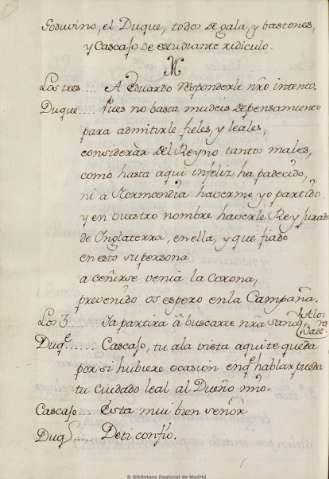 Goduvino, el Duque, todos de gala, y bastones,
y Cascajo de estudiante ridiculo.
Los tres... A Eduardo responderle nrô intento.
Duque... pues no basta mudeis de pensamiento
para admitirle fieles, y leales,
considerar del Reyno tantos males,
como hasta aqui infeliz ha padecido,
ni a Normandia haverme yo partido
y en vuestro nombre haverle Rey jurado
de Inglaterra, en ella, y que fiado
en esto su persona
a ceñirse venia la Corona,
prevenido os espero en la Campaña.
Los 3... Ya partira â buscarte nrâ saña
Duqe... Cascajo, tu a la vista aqui te queda
por si hubiere ocasion en qe hablar pueda
tu cuidado leal al Dueño mio.
Cascajo... Esta mui bien señor
Duqe... De ti confio.
© Biblioteca Regional de Madrid